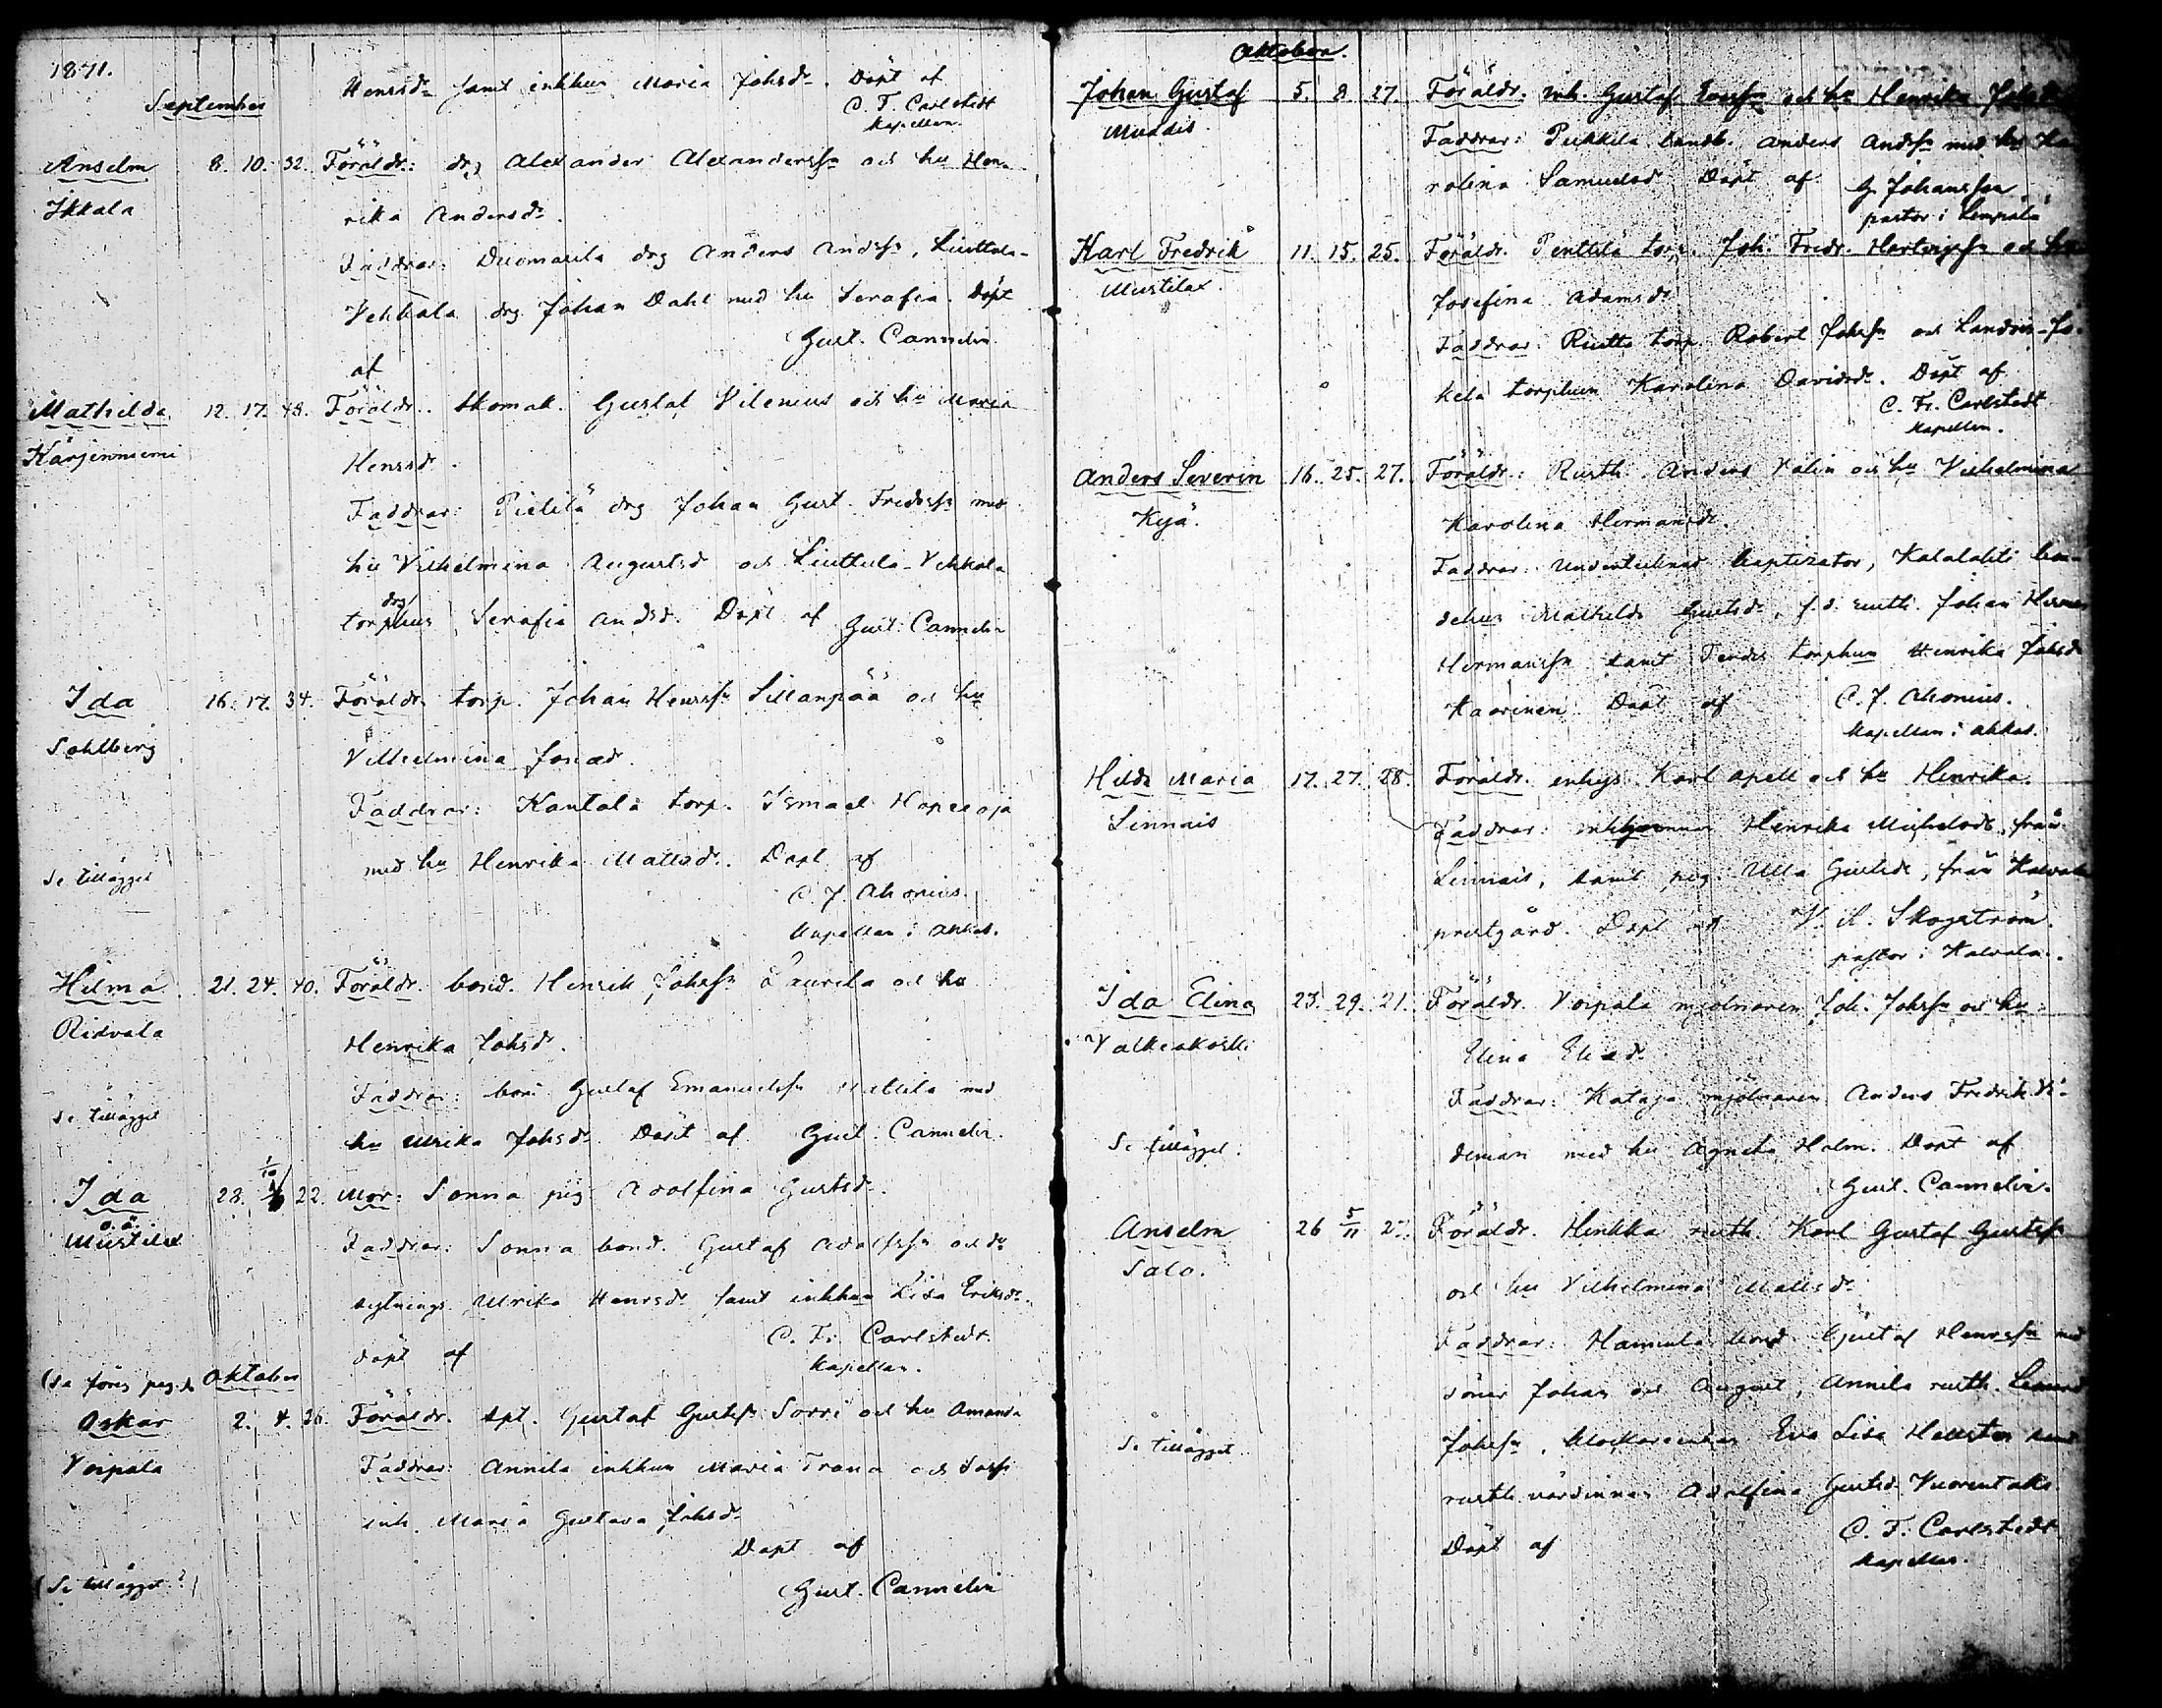 1871.
September
Henrsdr samt inkhun Maria Johsdr. Döpt af
C. F. Carlstedt
Kapellan.
Anselm 8. 10. 32. Föräldr: drg Alexander Alexanderssn och hu Hen-
Ikkala rika Andersdr.
Faddrar: Duomarila drg Anders Andssn, Liuttula-
Vekkala drg Johan Dahl med hu Serafia. Döpt
af Gust. Cannelin.
Mathilda 12. 17. 43. Föräldr. skomak. Gustaf Vilenius och hu Maria
Kärjenniemi Henrsdr.
Faddrar: Pietilä drg Johan Gust. Fredrssn med
hu Vilhelmina Augustsd och Liuttula-Vekkala
drg
torphus Serafia Andsd. Döpt af Gust. Cannelin
Ida 16. 17. 34. Föräldr. torp. Johan Henrssn Sillanpää och hu
Sohlberg Vilhelmina Jonasdr.
Faddrar: Kantala torp. Ismael Hopeeoja
Se tillägget med hu Henrika Mattsdr. Döpt af
C. J. Ahonius.
Kapellan i Akkas.
Hilma 21. 24. 40. Föräldr. bond. Henrik Johssn Laurila och hu
Ridvala Henrika Johsdr.
Faddrar: bond. Gustaf Emanuelssn Mattila med
Se tillägget hu Ulrika Johsdr. Döpt af Gust. Cannelin.
Ida 28. 1/10 22. Mor: Sonna pig. Adolfina Gustsdr.
o. ä.
Mustila Faddrar: Sonna bond. Gustaf Adolfssn och dr
sytnings Ulrika Henrsdr samt inkhun Lisa Eriksdr.
döpt af C. Fr. Carlstedt
Kapellan.
(se föreg. pag. Oktober
Oskar 2. 4. 26. Föräldr. spt. Gustaf Gustfs Sorri och hu Amanda
Voipala Faddrar: Annila inkhun Maria Trana och
inh. Maria Gustava Johsdr
Döpt af
(Se tillägget?) Gust. Cannelin
Oktober.
Johan Gustaf 5. 8. 27. Föräldr. inh. Gustaf och hu Henrika
Faddrar: Pukkila landb. Anders Andssn med hu Ka-
rolina Samuelsd Döpt af G. Johansson
pastor i Lempälä
Karl Fredrik 11. 15. 25. Föräldr. Penttilä torp. Joh. Fredr. Hartvigssn och hu
Mustila. Josefina Adamsdr
Faddrar: torp. Robert Johssn och
kela torphun Karolina Davidsdr. Döpt af
C. Fr. Carlstedt
Kapellan.
Anders Severin 16. 25. 27. Föräldr: Rusth. Anders Välin och hu Vilhelmina
Kyä. Karolina Hermansdr.
Faddrar: Undertecknad baptizator, Katalahti bon-
dehus Mathilda Gustsdr, f. d. rusth. Johan
Hermanssn samt torphun Henrika Johsd
Kaarinen Döpt af C. J. Ahonius.
Kapellan i Akkas.
Hilda Maria 17. 27. 28. Föräldr. inhys. Karl Apell och hu Henrika.
Linnais Faddrar: Henrika Michelsdr, från
Linnais, samt pig. Ulla Gustsdr, från Kalvola
prestgård. Döpt af Skogström
pastor i Kalvola.
Ida Elina 23. 29. 21. Föräldr. Voipala mjölnaren Joh. Johssn och hu
Valkeakoski Elina Eliasdr
Faddrar: Kataja mjölnaren Anders Fredrik Vi-
Se tillägget. demän med hu Agneta Holm. Döpt af
Gust. Cannelin.
Anselm 26 5/11 Föräldr. Hinkka rusth. Karl Gustaf Gustfs
Salo. och hu Vilhelmina Mattsdr
Faddrar: Hannula bond. Gustaf Henrssn med
söner Johan och August, Annila rusth.
Se tillägget. Johssn, Eva Lisa Hellsten samt
rusth.värdinnan Adolfina Gustsd Vuorentaka.
Döpt af C. F. Carlstedt
Kapellan.